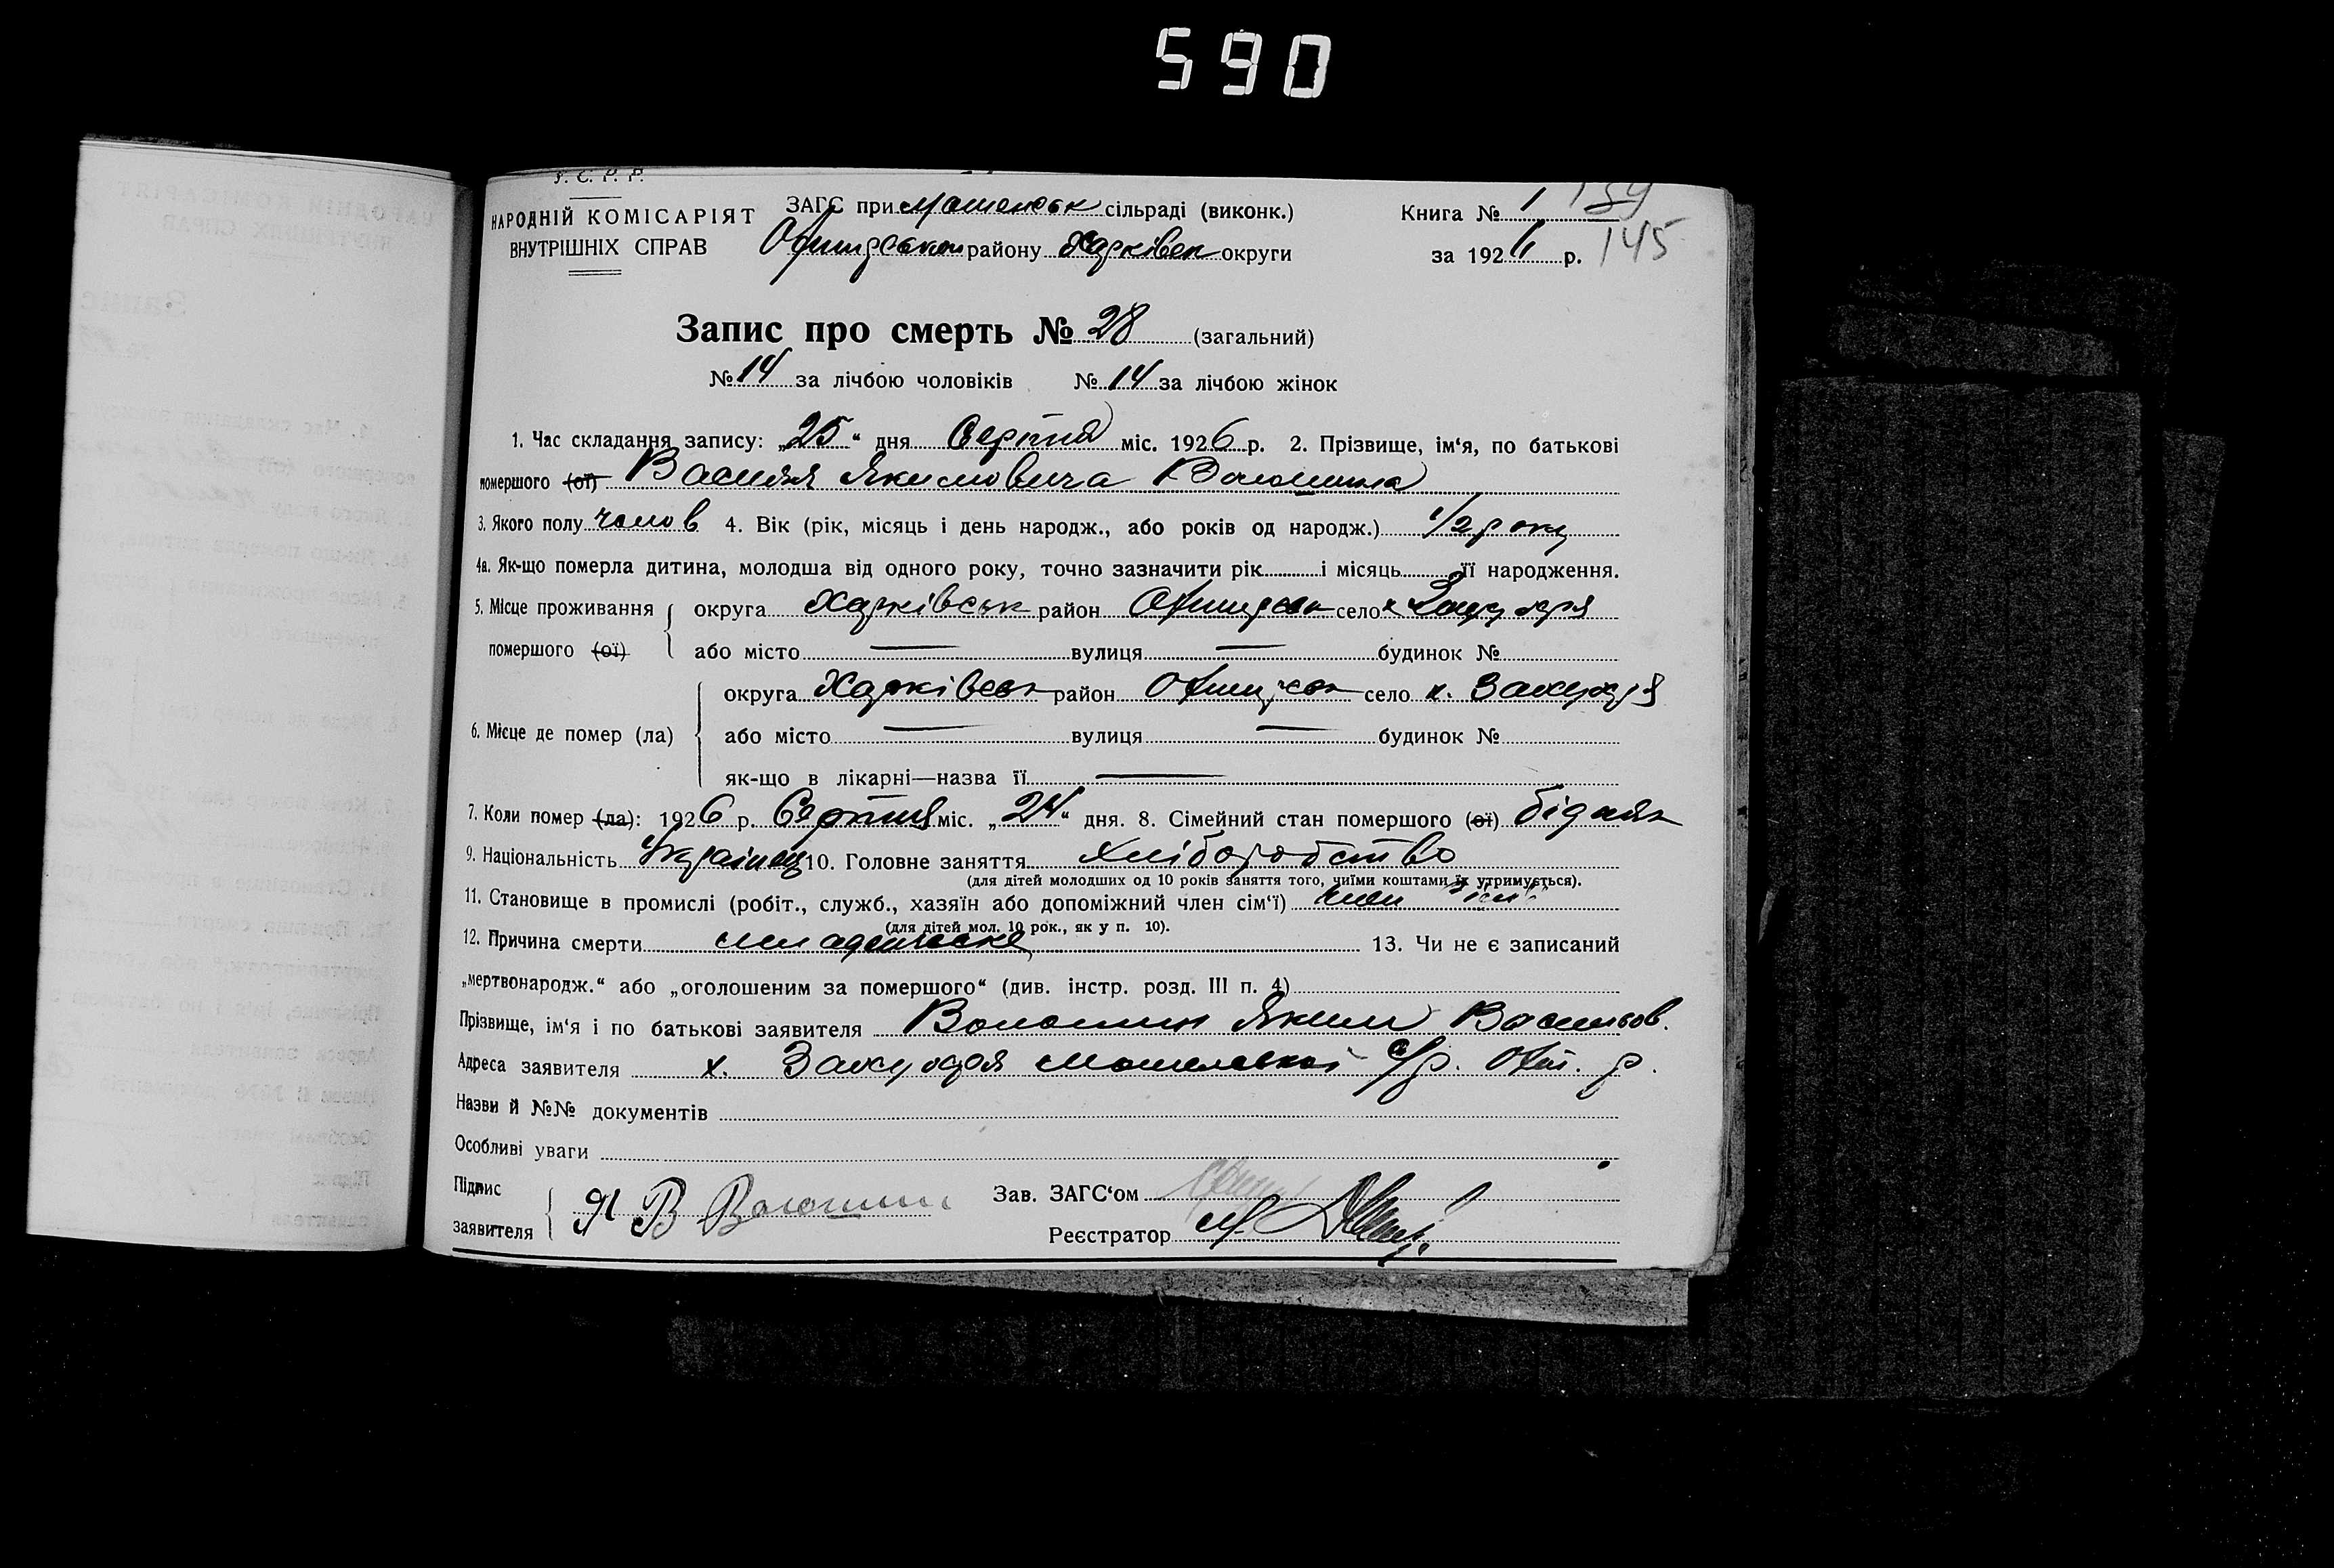 590
У. С. Р. Р.
НАРОДНІЙ КОМІСАРІЯТ
ВНУТРІШНІХ СПРАВ
ЗАГС при сільраді (виконк.)
району Харківськ округи
Книга № 1
за 1926 р. 145
Запис про смерть № 28 (загальний)
№ 14 за лічбою чоловіків № 14 за лічбою жінок
1. Час складання запису: „25“ дня Серпня міс. 1926 р. 2. Прізвище, ім‘я, по батькові
помершого (ої) Василя Якимовича Волошина
3. Якого полу чолов 4. Вік (рік, місяць і день народж., або років од народж.) 1/2 року
4а. Як-що померла дитина, молодша від одного року, точно зазначити рік і місяць її народження.
5. Місце проживання округа Харківськ район село х.
помершого (ої) або місто — вулиця — будинок №
округа Харківськ район село х.
6. Місце де помер (ла)
або місто — вулиця — будинок №
як-що в лікарні—назва її —
7. Коли помер (ла): 1926 р. Серпня міс. „24“ дня. 8. Сімейний стан помершого (ої) бідняк
9. Національність Українец 10. Головне заняття хліборобство
(для дітей молодших од 10 років заняття того, чиїми коштами їх утримується).
11. Становище в промислі (робіт., служб., хазяїн або допоміжний член сім‘ї) член
(для дітей мол. 10 рок., як у п. 10).
12. Причина смерти 13. Чи не є записаний
„мертвонародж.“ або „оголошеним за помершого“ (див. інстр. розд. III п. 4)
Прізвище, ім‘я і по батькові заявителя Волошин Яким Васильов.
Адреса заявителя х. с/р. р.
Назви й №№ документів
Особливі уваги
Підпис
заявителя Я В Волошин
Зав. ЗАГС‘ом
Реєстратор